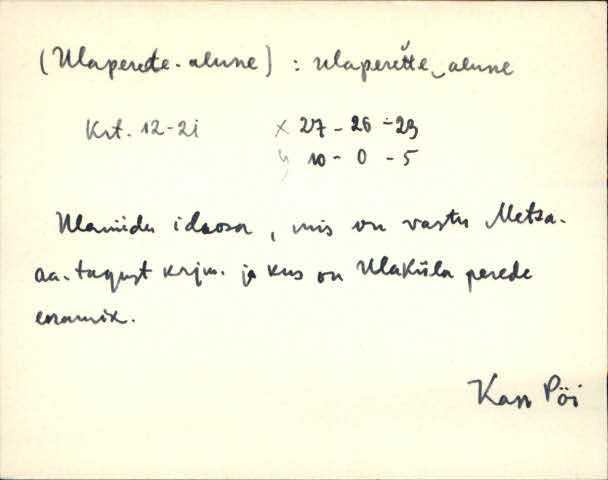 (Ulaperede-alune) : ulaperette alune
Krt. 12-21 x 27 - 26 - 29
y 10 - 0 - 5
Ulaniidu idaosa, mis on vastu Metsa-
aa-tagust krjm. ja kus on Ulaküla perede
enamik.
Kan Pöi